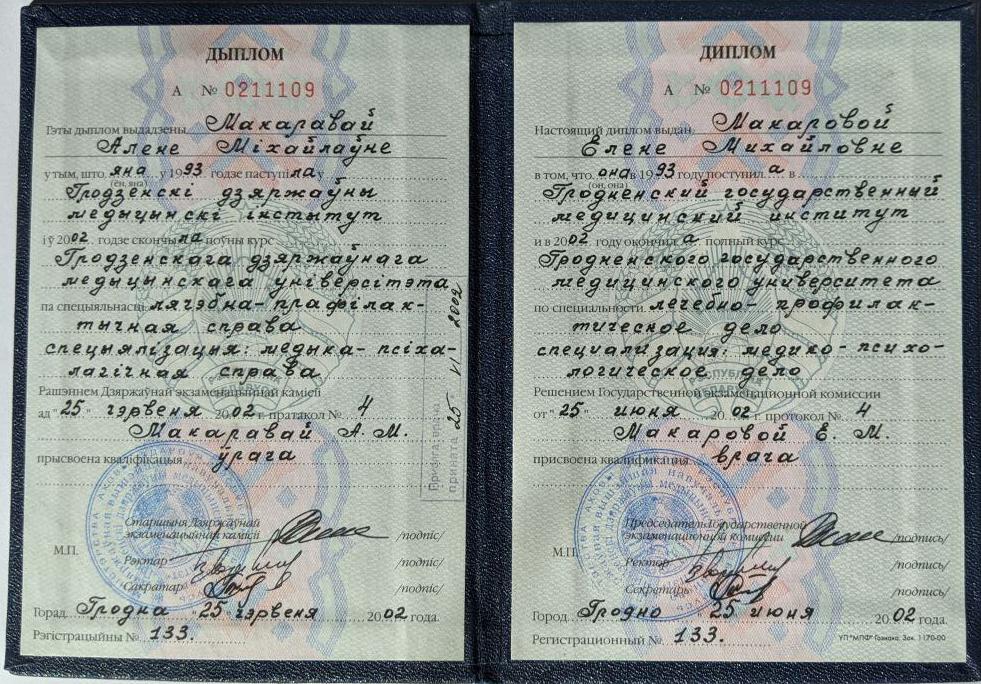 ДЫПЛОМ
А № 0211109
Гэты дыплом выдадзены Макаравай
Алене Міхайлаўне
у тым, што яна у 1993 годзе паступіла у
(ён, яна)
Гродзенскі дзяржаўны
медыцынскі інстытут
і ў 2002 годзе скончыла поўны курс
Гродзенскага дзяржаўнага
медыцынскага універсітэта
па спецыяльнасці лячэбна-прафілак-
тычная справа
спецыялізацыя: медыка-псіха-
лагічная справа
Рашэннем Дзяржаўнай экзаменацыйнай камісіі
ад "25" чэрвеня 2002 г. пратакол № 4
Макаравай А. М.
прысвоена кваліфікацыя ўрача
Старшыня Дзяржаўнай
экзаменацыйнай камісіі /подпіс/
М.П.
Рэктар /подпіс/
Сакратар /подпіс/
Горад Гродна "25" чэрвеня 2002 года.
Рэгістрацыйны № 133.
принята 25 VI 2002
ДИПЛОМ
А № 0211109
Настоящий диплом выдан Макаровой
Елене Михайловне
в том, что она в 1993 году поступила в
(он, она)
Гродненский государственный
медицинский институт
и в 2002 году окончила полный курс
Гродненского государственного
медицинского университета
по специальности лечебно-профилак-
тическое дело
специализация: медико-психо-
логическое дело
Решением Государственной экзаменационной комиссии
от "25" июня 2002 г. протокол № 4
Макаровой Е. М.
присвоена квалификация врача
Председатель Государственной
экзаменационной комиссии /подпись/
М.П.
Ректор /подпись/
Секретарь /подпись/
Город Гродно 25 июня 2002 года.
Регистрационный № 133.
УП "МПФ" Гознака. Зак. 1170-00